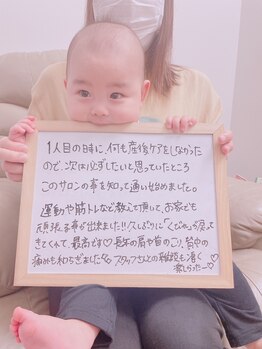 1人目の時に、何も産後ケアをしなかった
ので、次は必ずしたいと思っていたところ
このサロンの事を知って通い始めました。
運動や筋トレなど教えて頂いて、お家でも
頑張る事が出来ました!!久しぶりに"くびれ"が戻って
きてくれて、最高です♡長年の肩や首のこり、背中の
痛みも和らぎました。スタッフさんとの雑談も凄く
楽しかったー♡